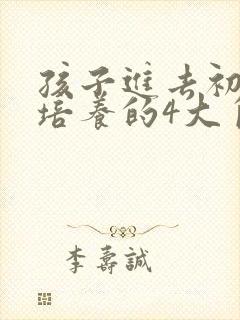 孩子進去初
培養的4大
李壽誠